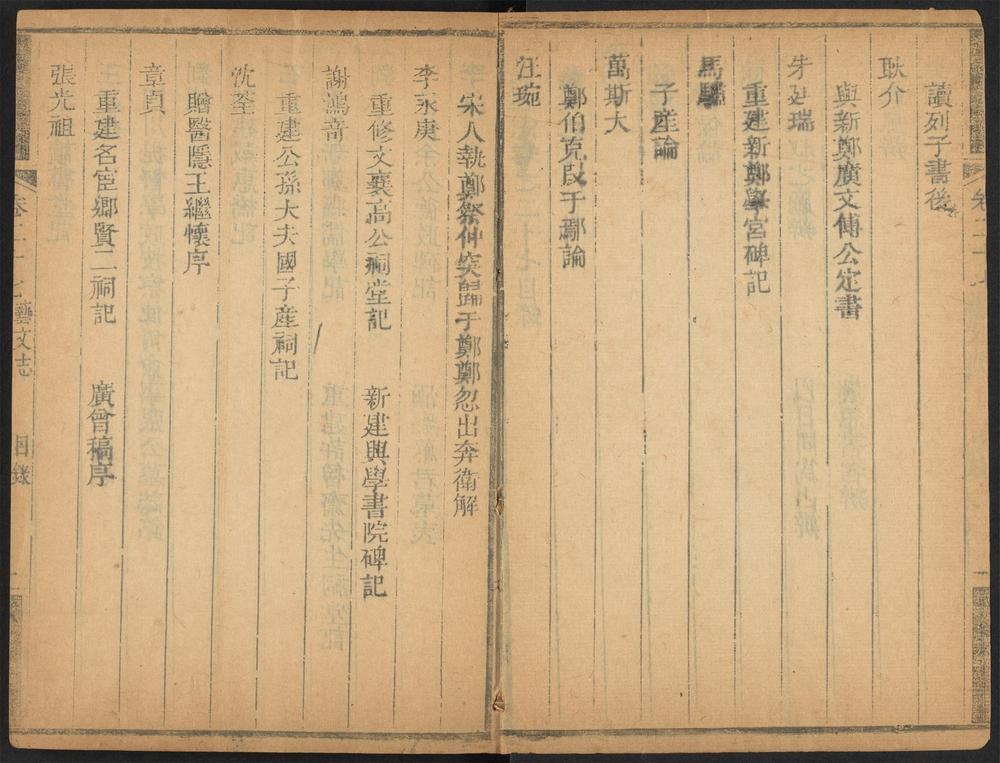 讀列子書後
耿介
與新鄭廣文傅公定書
朱廷瑞
重建新鄭學宮碑記
馬驌
子產論
萬斯大
鄭伯克段于鄢論
汪琬
宋人執鄭祭仲突歸于鄭鄭忽出奔衛解
李永庚
重修文襄高公祠堂記　新建興學書院碑記
謝鴻音
重建公孫大夫國子產祠記
沈荃
贈醫隱王繼懷序
章貞
重建名宦鄉賢二祠記　廣曾稿序
張光祖
卷二十七藝文志　目錄　二